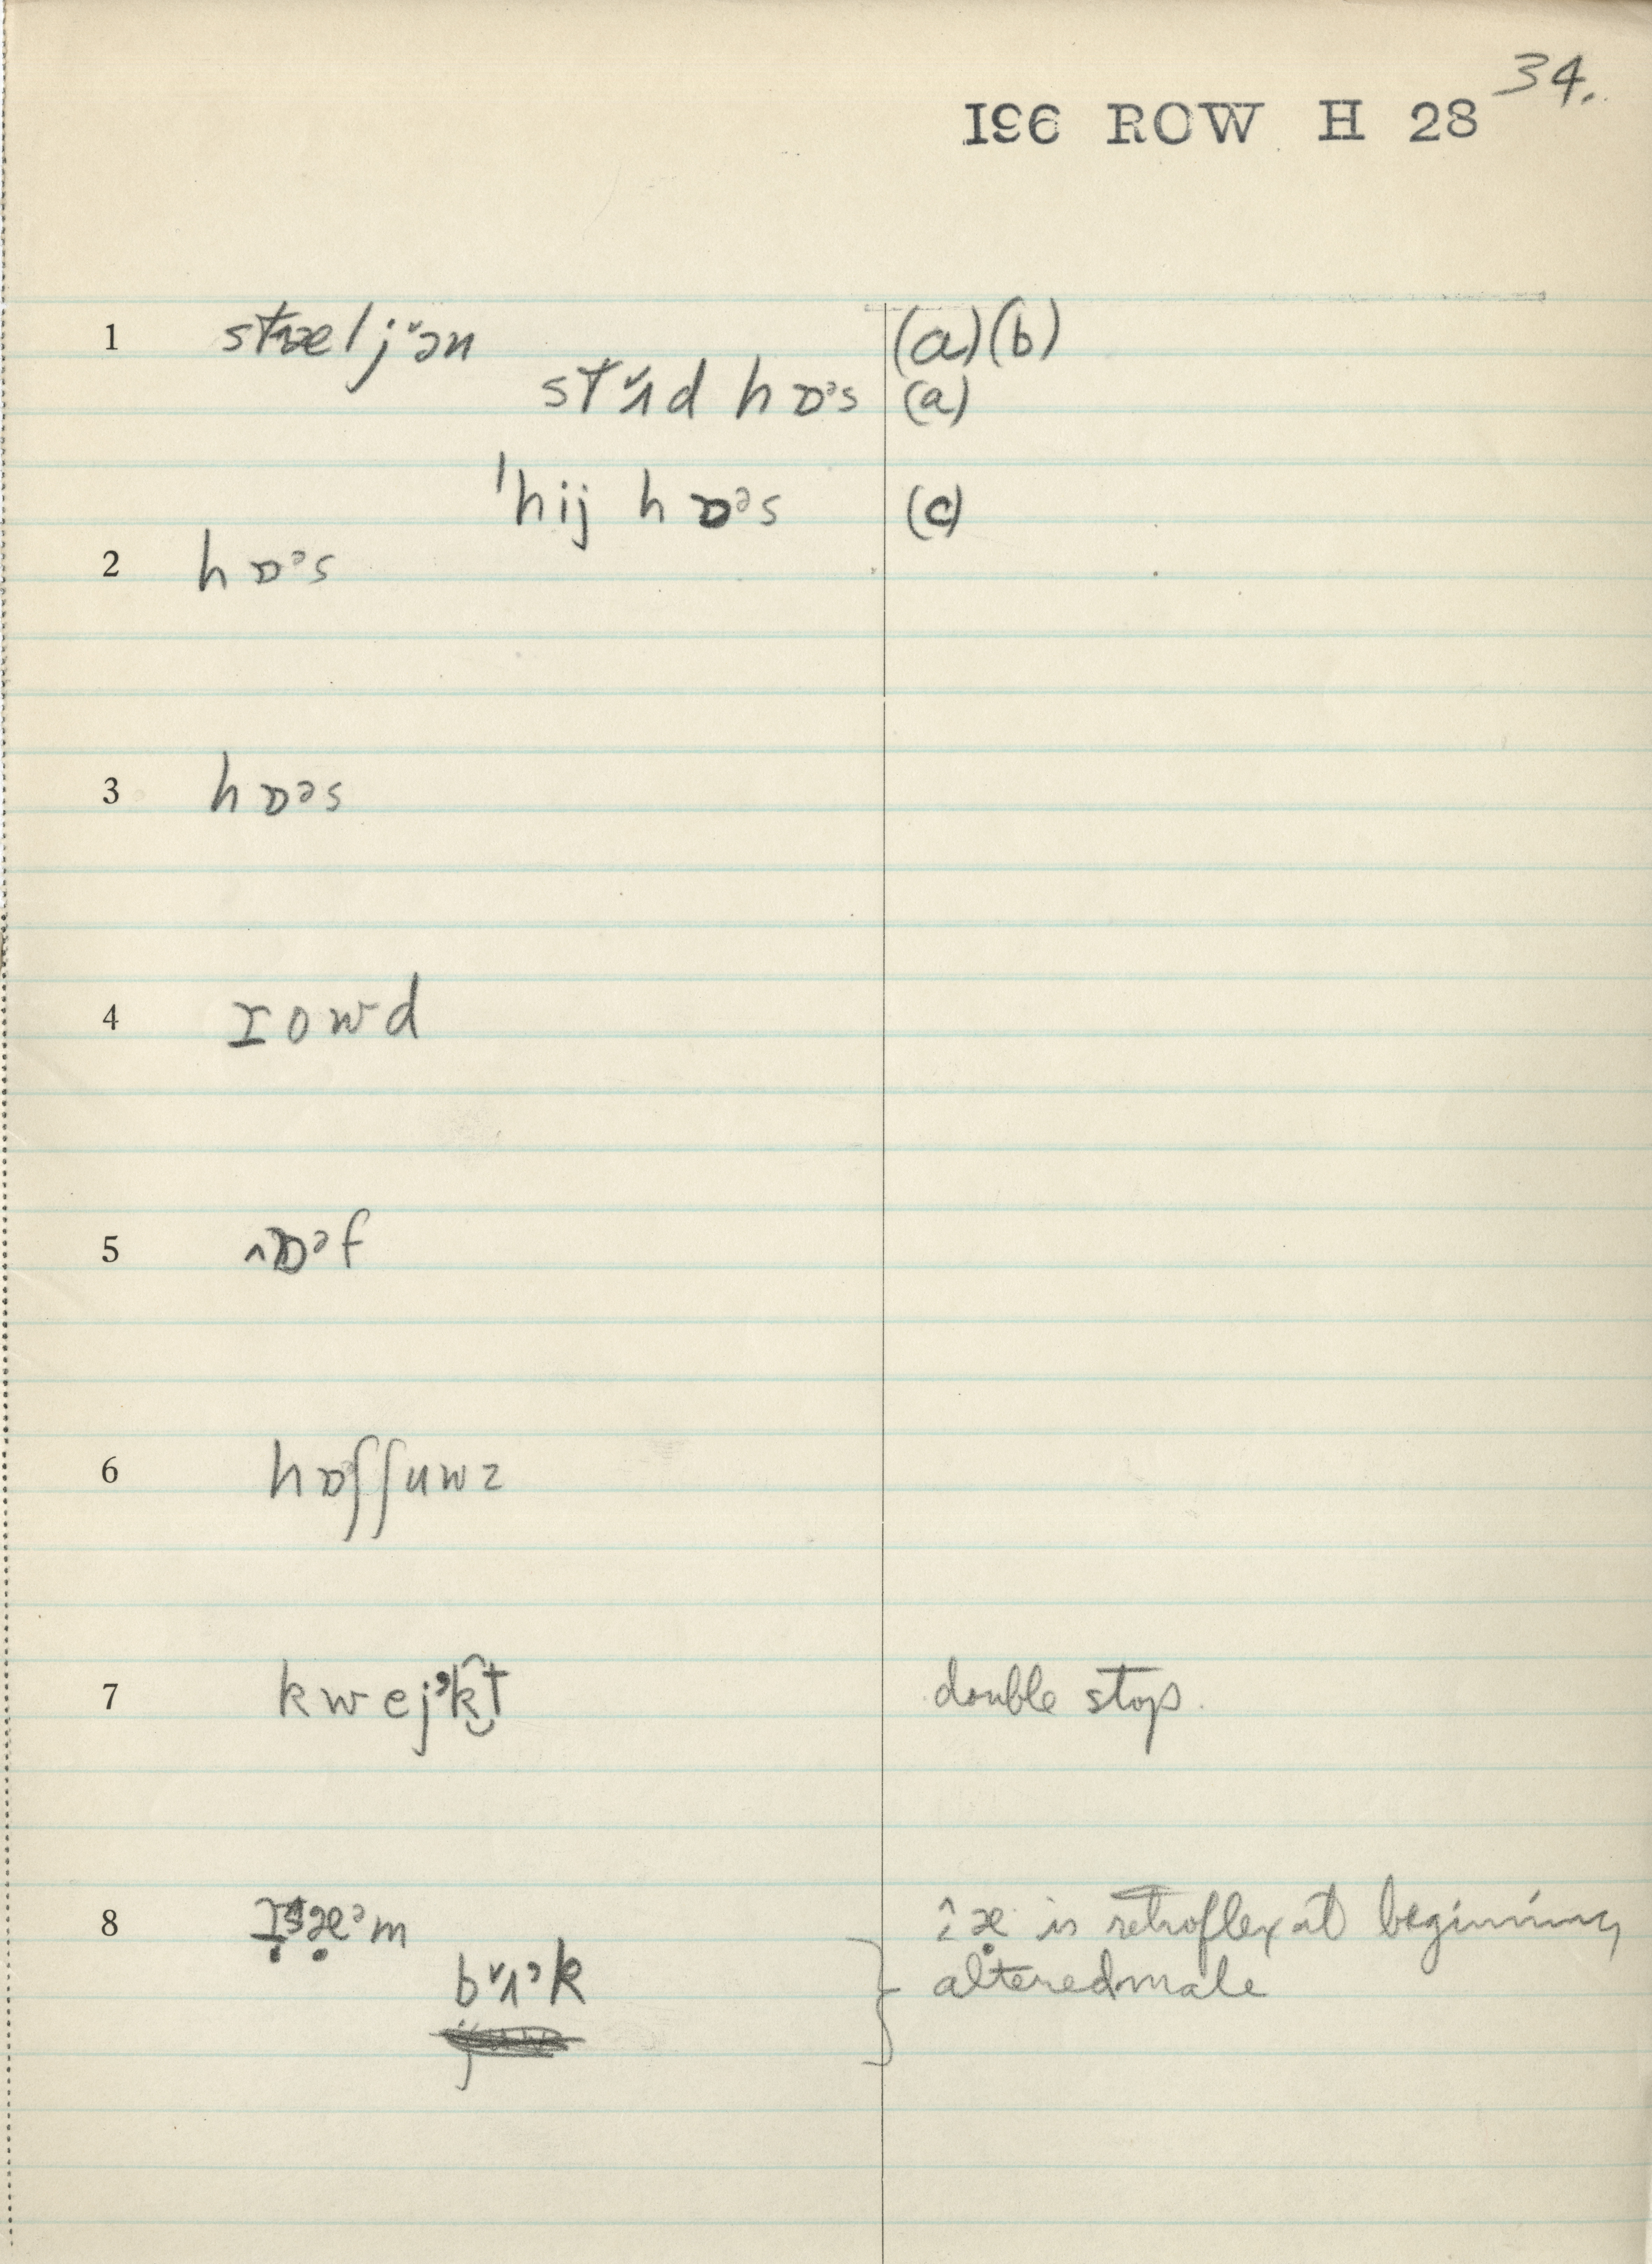 34.
196 ROW H 28
1 stæljᵛən (a)(b)
stᵛɹd hɒᵊs (a)
ˈhij hɒᵊs (c)
2 hɒᵊs
3 hɒəs
4 rowd
5 ˄ɒᵊf
6 hɒᵊʃʃuwz
7 kwejᵊk͜t double stop.
is retroflex at beginning
8 æᵊm
bᵛɹᵊk altered male